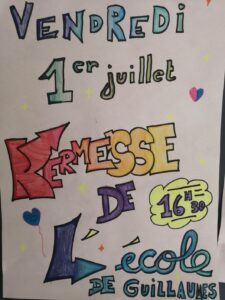 VENDREDI
1er juillet
KERMESSE
DE 16H30
L'école
DE GUILLAUMES!